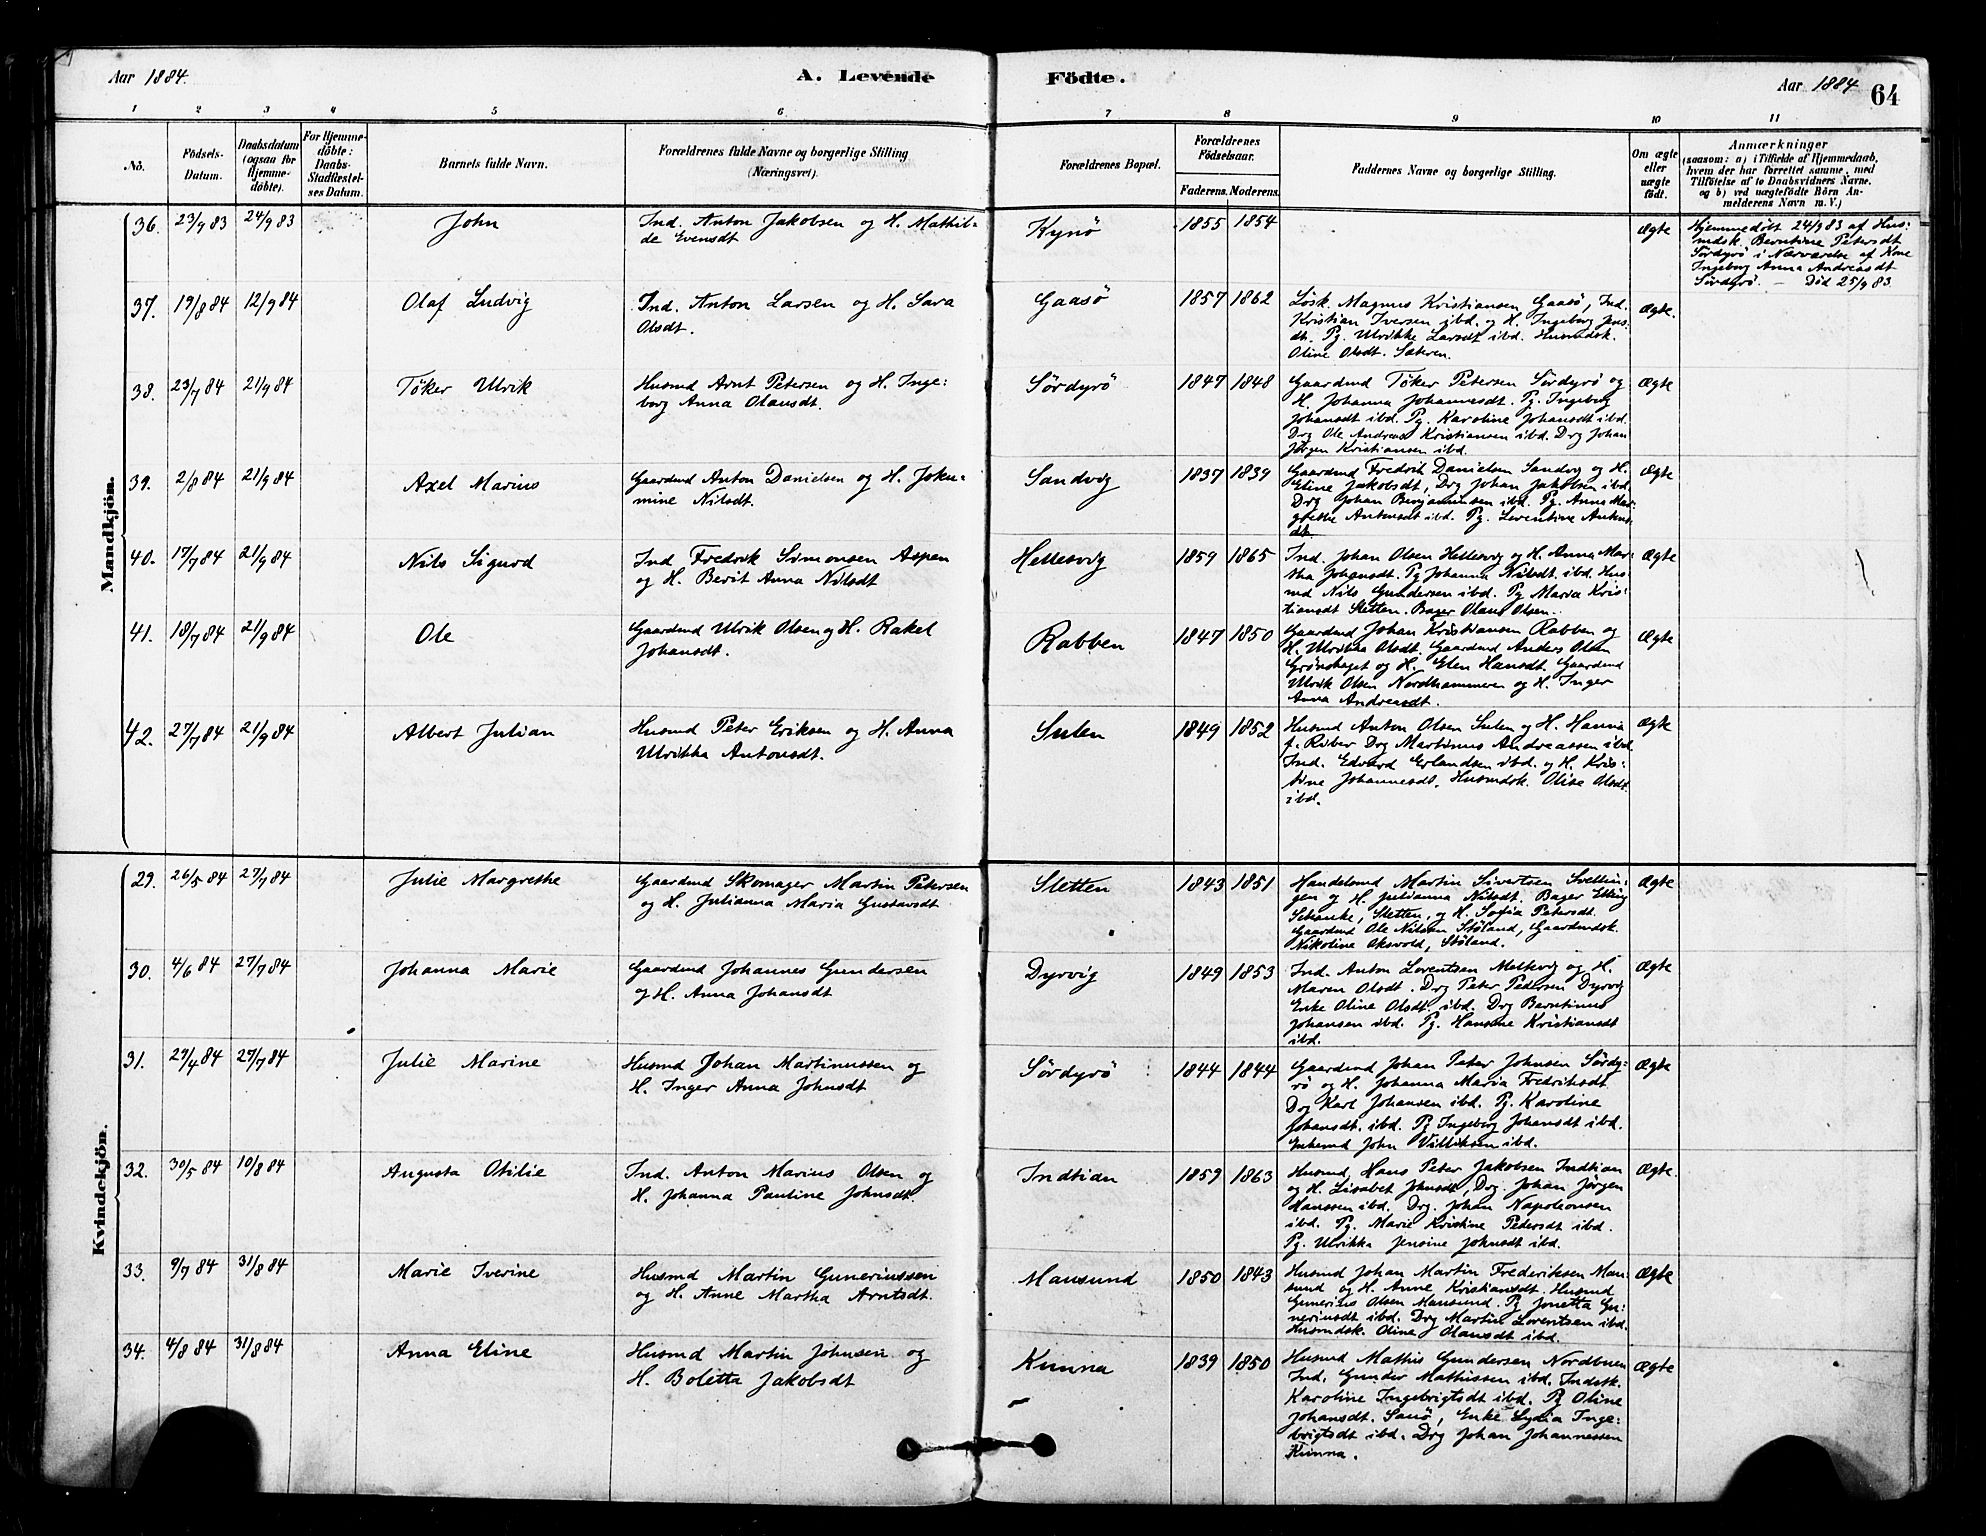 Aar 1884.
A. Levende Födte.
Aar 1884
64
1 2 3 4 5 6 7 8 9 10 11
No.
Födsels-
Datum.
Daabsdatum
(ogsaa for
Hjemme-
döbte).
For Hjemme-
döbte:
Daabs-
Stadfæstel-
ses Datum.
Barnets fulde Navn.
Forældrenes fulde Navne og borgerlige Stilling
(Næringsvei).
Forældrenes Bopæl.
Forældrenes
Födselsaar.
Faderens. Moderens.
Faddernes Navne og borgerlige Stilling.
Om ægte
eller
uægte
födt.
Anmærkninger
(saasom: a) i Tilfælde af Hjemmedaab,
hvem der har forrettet samme, med
Tilföielse af to Daabsvidners Navne,
og b) ved uægtefödte Börn An-
melderens Navn m. V.)
Mandkjön.
36. 23/9 83 24/9 83 John
Ind. Anton Jakobsen og H. Mathil-
de Evensdt
Kynö 1855 1854 Ægte
Hjemmedöbt 24/9 83 af Hus-
mdsk. Berntine Petersdt
Sördyrö i Nærværelse af Kone
Ingeborg Anna Andreasdt
Sördyrö. — Död 25/9 83.
37. 19/8 84 12/9 84 Olaf Ludvig
Ind. Anton Larsen og H. Sara
Olsdt.
Gaasö 1857 1862
Løsk. Magnus Kristiansen Gaasö, Ind.
Kristian Iversen ibd. og H. Ingeborg Jens-
dt. Pg. Ulrikke Larsdt ibd. Husmdsk.
Oline Olsdt. Sæteren.
Ægte.
38. 23/7 84 21/9 84 Töker Ulrik
Husmd Arnt Petersen og H. Inge-
borg Anna Olausdt.
Sördyrö 1847 1848
Gaardmd Töker Petersen Sördyrö og
H. Johanna Johannesdt. Pg. Ingeborg
Johansdt ibd. Pg. Karoline Johansdt ibd.
Drg Ole Andreas Kristiansen ibd. Drg Johan
Jörgen Kristiansen ibd.
Ægte
39. 2/8 84 21/9 84 Axel Marius
Gaardmd Anton Danielsen og H. Joku-
mine Nilsdt.
Sandvig 1837 1839
Gaardmd Fredrik Danielsen Sandvig og H.
Eline Jakobsdt, Drg Johan Jakobsen ibd.
Drg Johan Benjaminsen ibd. Pg. Anna Mar-
grethe Antonsdt ibd. Pg. Lorentine Antons-
dt.
Ægte
40. 17/7 84 21/9 84 Nils Sigurd
Ind Fredrik Simonsen Aspen
og H. Berit Anna Nilsdt
Hellesvig 1859 1865
Ind. Johan Olsen Hellesvig og H. Anna Mar-
tha Johansdt. Pg Johanna Nilsdt. ibd. Hus-
md Nils Gundersen ibd. Pg Maria Kris-
tiansdt Sletten. Bager Olaus Olsen.
Ægte
41. 18/7 84 21/9 84 Ole
Gaardmd Ulrik Olsen og H. Rakel
Johansdt.
Rabben 1847 1850
Gaardmd Johan Kristiansen Rabben og
H. Ulrikka Olsdt. Gaardmd Anders Olsen
Grönskaget og H. Elen Hansdt. Gaardmd
Ulrik Olsen Nordhammeren og H. Inger
Anna Andreasdt.
Ægte
42. 27/7 84 21/9 84 Albert Julian
Husmd Peter Eriksen og H. Anna
Ulrikka Antonsdt.
Sulen 1849 1852
Husmd Anton Olsen Sulen og H. Hanna
f. Riber Drg Martinus Andreassen ibd
Ind. Edvard Erlandsen ibd. og H. Kris-
tine Johannesdt. Husmdsk. Olise Olsdt
ibd.
Ægte
Kvindekjön.
29. 26/5 84 27/7 84 Julie Margrethe
Gaardmd Skomager Martin Petersen
og H. Julianna Maria Gustavsdt
Sletten 1843 1851
Handelsmd Martin Sivertsen Svellin-
gen og H. Julianna Nilsdt. Bager Elling
Schanke, Sletten, og H. Sofia Petersdt.
Gaardmd Ole Nilsen Stöland, Gaardmdsk.
Nikoline Oksvold, Stöland.
Ægte
30. 4/6 84 27/7 84 Johanna Marie
Gaardmd Johannes Gundersen
og H. Anna Johansdt
Dyrvig 1849 1853
Ind. Anton Lorentsen Melkvig og H.
Maren Olsdt. Drg Peter Pedersen Dyrvig
Enke Oline Olsdt. ibd. Drg Berntinus
Johansen ibd. Pg. Hansine Kristiansdt
ibd.
Ægte
31. 27/4 84 27/7 84 Julie Marine
Husmd Johan Martinussen og
H. Inger Anna Johnsdt
Sördyrö 1844 1844
Gaardmd Johan Peter Johnsen Sördy-
rö og H. Johanna Maria Fredriksdt
Drg Karl Johansen ibd. Pg. Karoline
Johansdt. ibd. Pg Ingeborg Johansdt ibd.
Enkemd John Villiksen ibd.
Ægte
32. 30/5 84 10/8 84 Augusta Otilie
Ind. Anton Marius Olsen og
H. Johanna Pauline Johnsdt.
Indtian 1859 1863
Husmd Hans Peter Jakobsen Indtian
og H. Lisabet Johnsdt, Drg. Johan Jörgen
Hanssen ibd. Drg. Johan Napoleonsen
ibd. Pg. Marie Kristine Pedersdt ibd.
Pg. Ulrikka Jensine Johnsdt ibd.
Ægte
33. 9/7 84 31/8 84 Marie Iverine
Husmd Martin Gunerinssen
og H. Anne Martha Arntsdt.
Mausund 1850 1843
Husmd Johan Martin Frederiksen Mau-
sund og H. Anne Kristiansdt. Husmd
Gunerius Olsen Mausund. Pg Jonetta Gu-
neriusdt ibd. Drg Martin Lorentsen ibd.
Husmdsk. Oline Olausdt ibd.
Ægte
34. 4/8 84 31/8 84 Anna Eline
Husmd Martin Johnsen og
H. Boletta Jakobsdt
Kunna 1839 1850
Husmd Mathis Gundersen Nordbuen
Ind. Gunder Mathissen ibd. Indsk.
Karoline Ingebrigtsdt ibd. Pg Oline
Johansdt. Sauö, Enke Lydia Inge-
brigtsdt ibd. Drg Johan Johannessen
Kunna.
Ægte